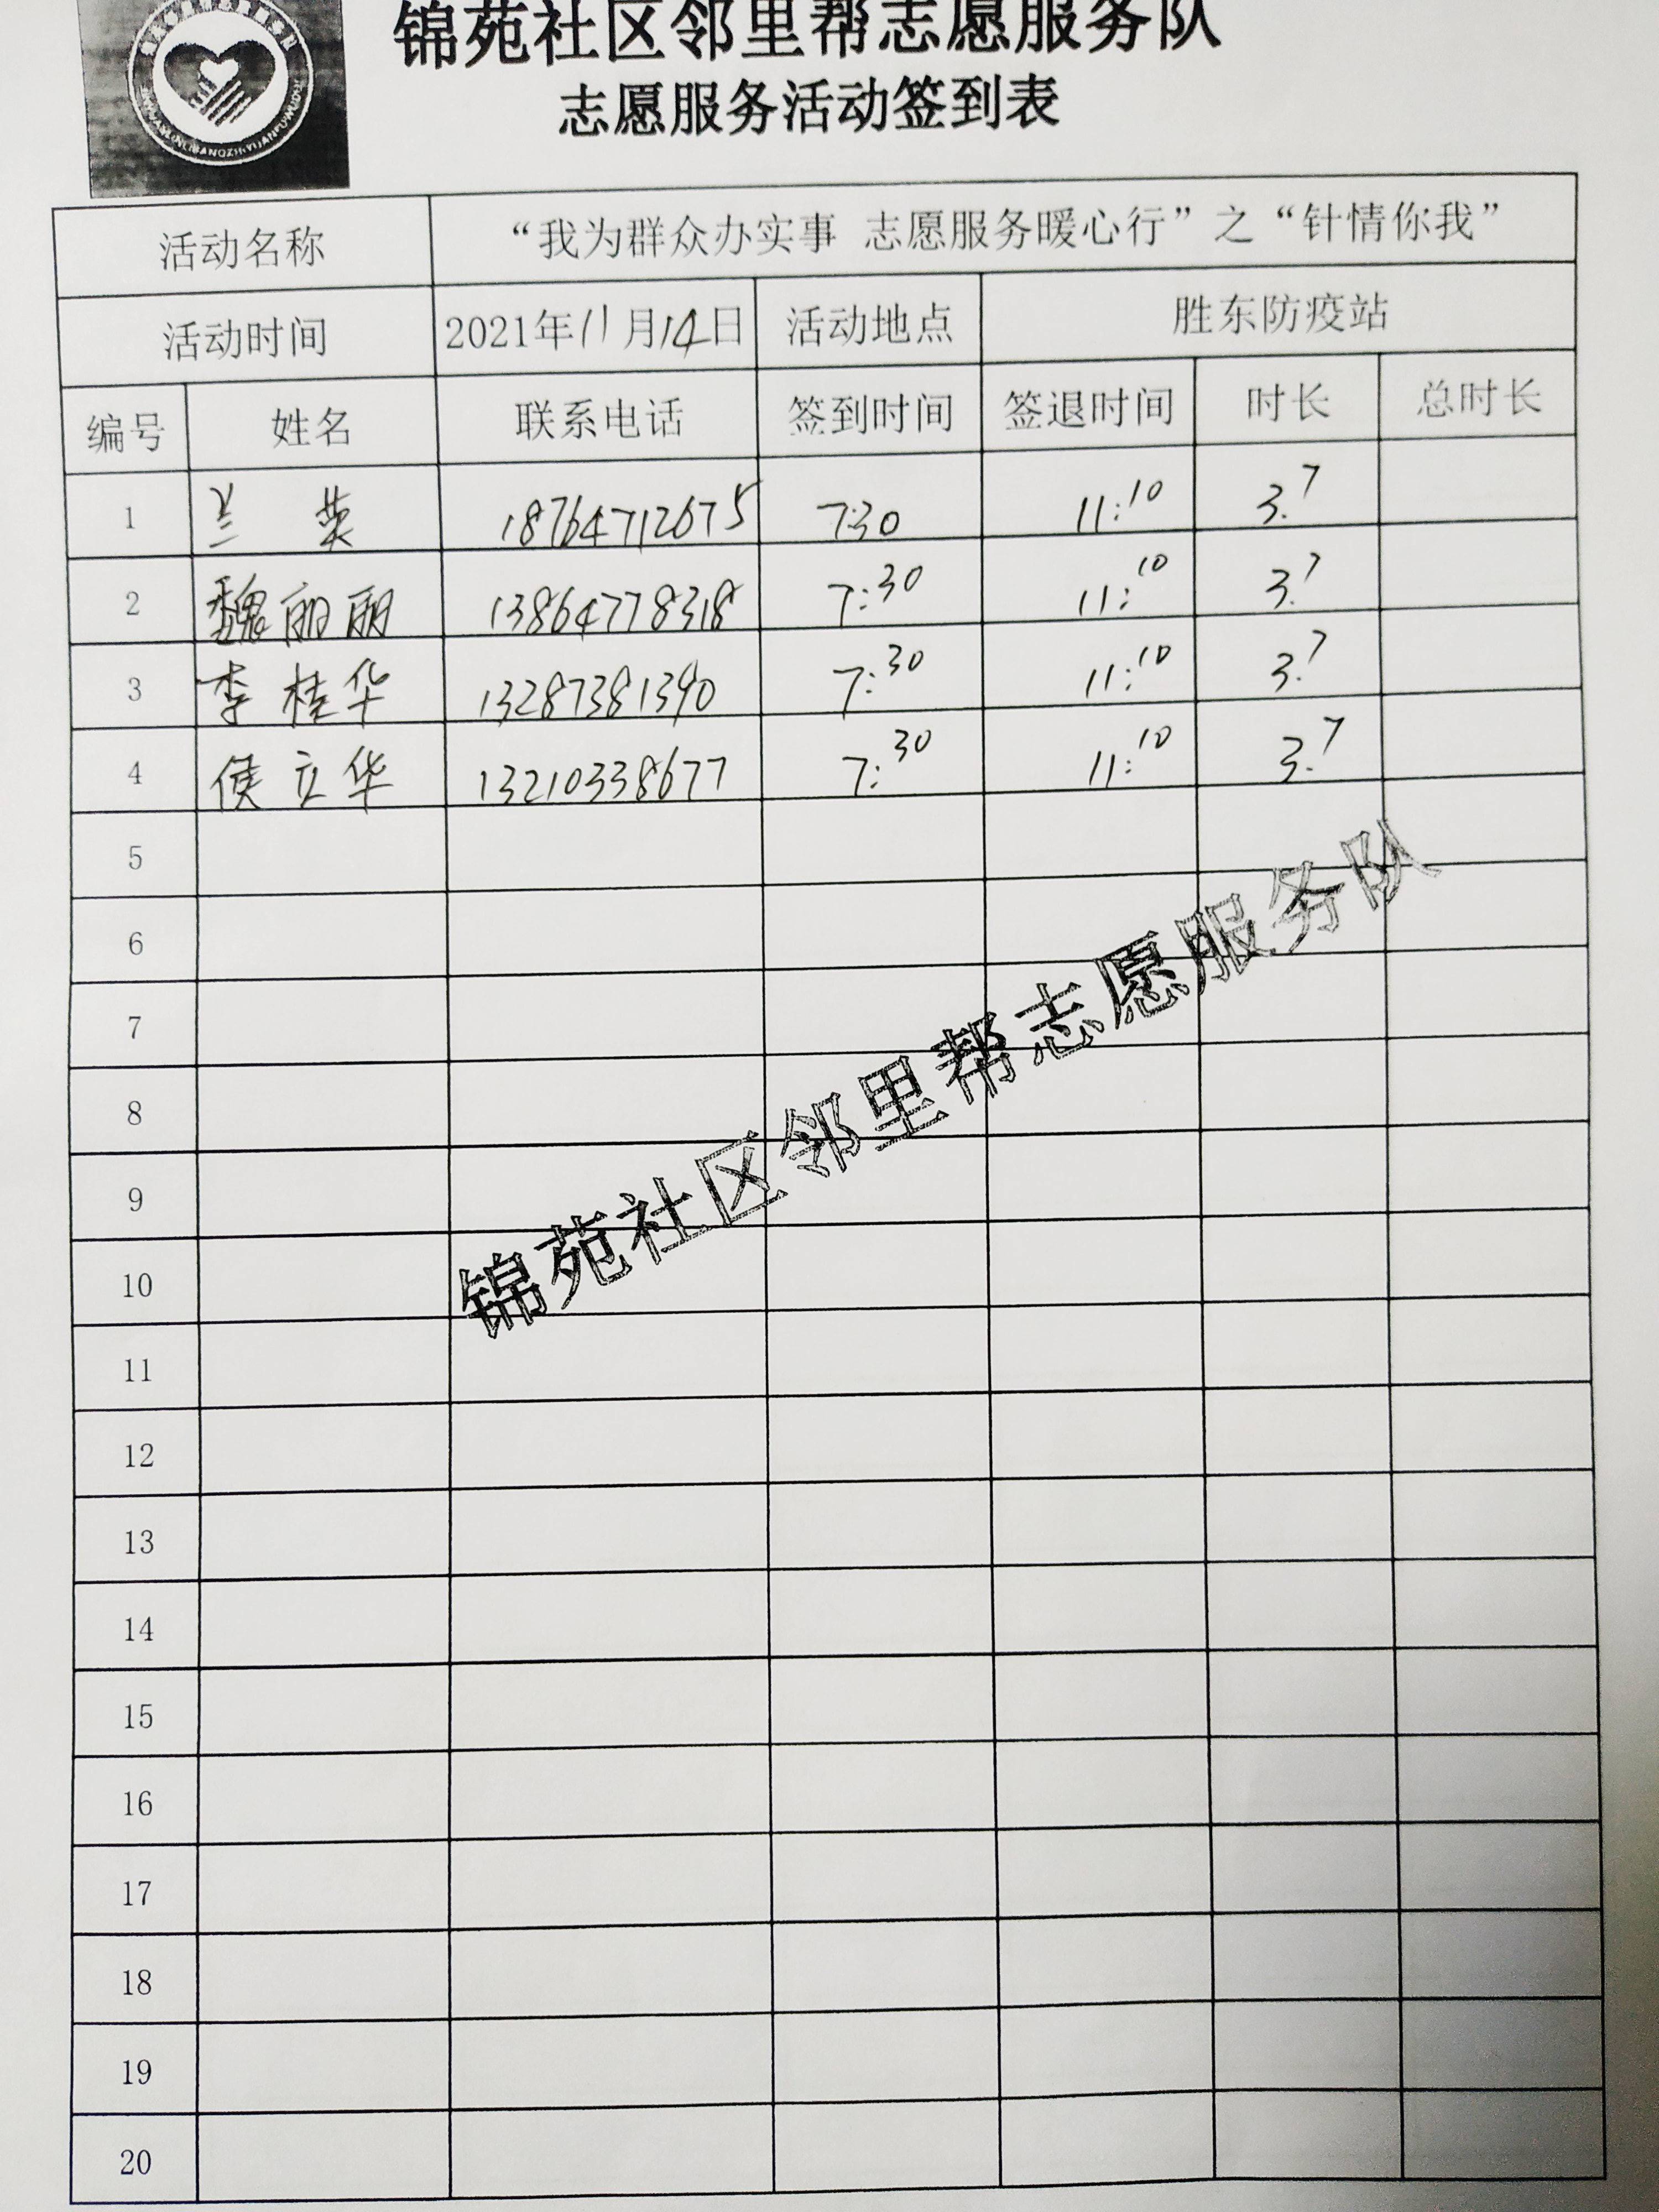 锦苑社区邻里帮志愿服务队
志愿服务活动签到表
活动名称 “我为群众办实事 志愿服务暖心行”之“针情你我”
活动时间 2021年11月14日 活动地点 胜东防疫站
编号 姓名 联系电话 签到时间 签退时间 时长 总时长
1 兰英 18764712675 7:30 11:10 3.7
2 魏丽丽 13864778318 7:30 11:10 3.7
3 李桂华 13287381390 7:30 11:10 3.7
4 侯立华 13210338677 7:30 11:10 3.7
5
6
7
8
9
10
11
12
13
14
15
16
17
18
19
20
锦苑社区邻里帮志愿服务队